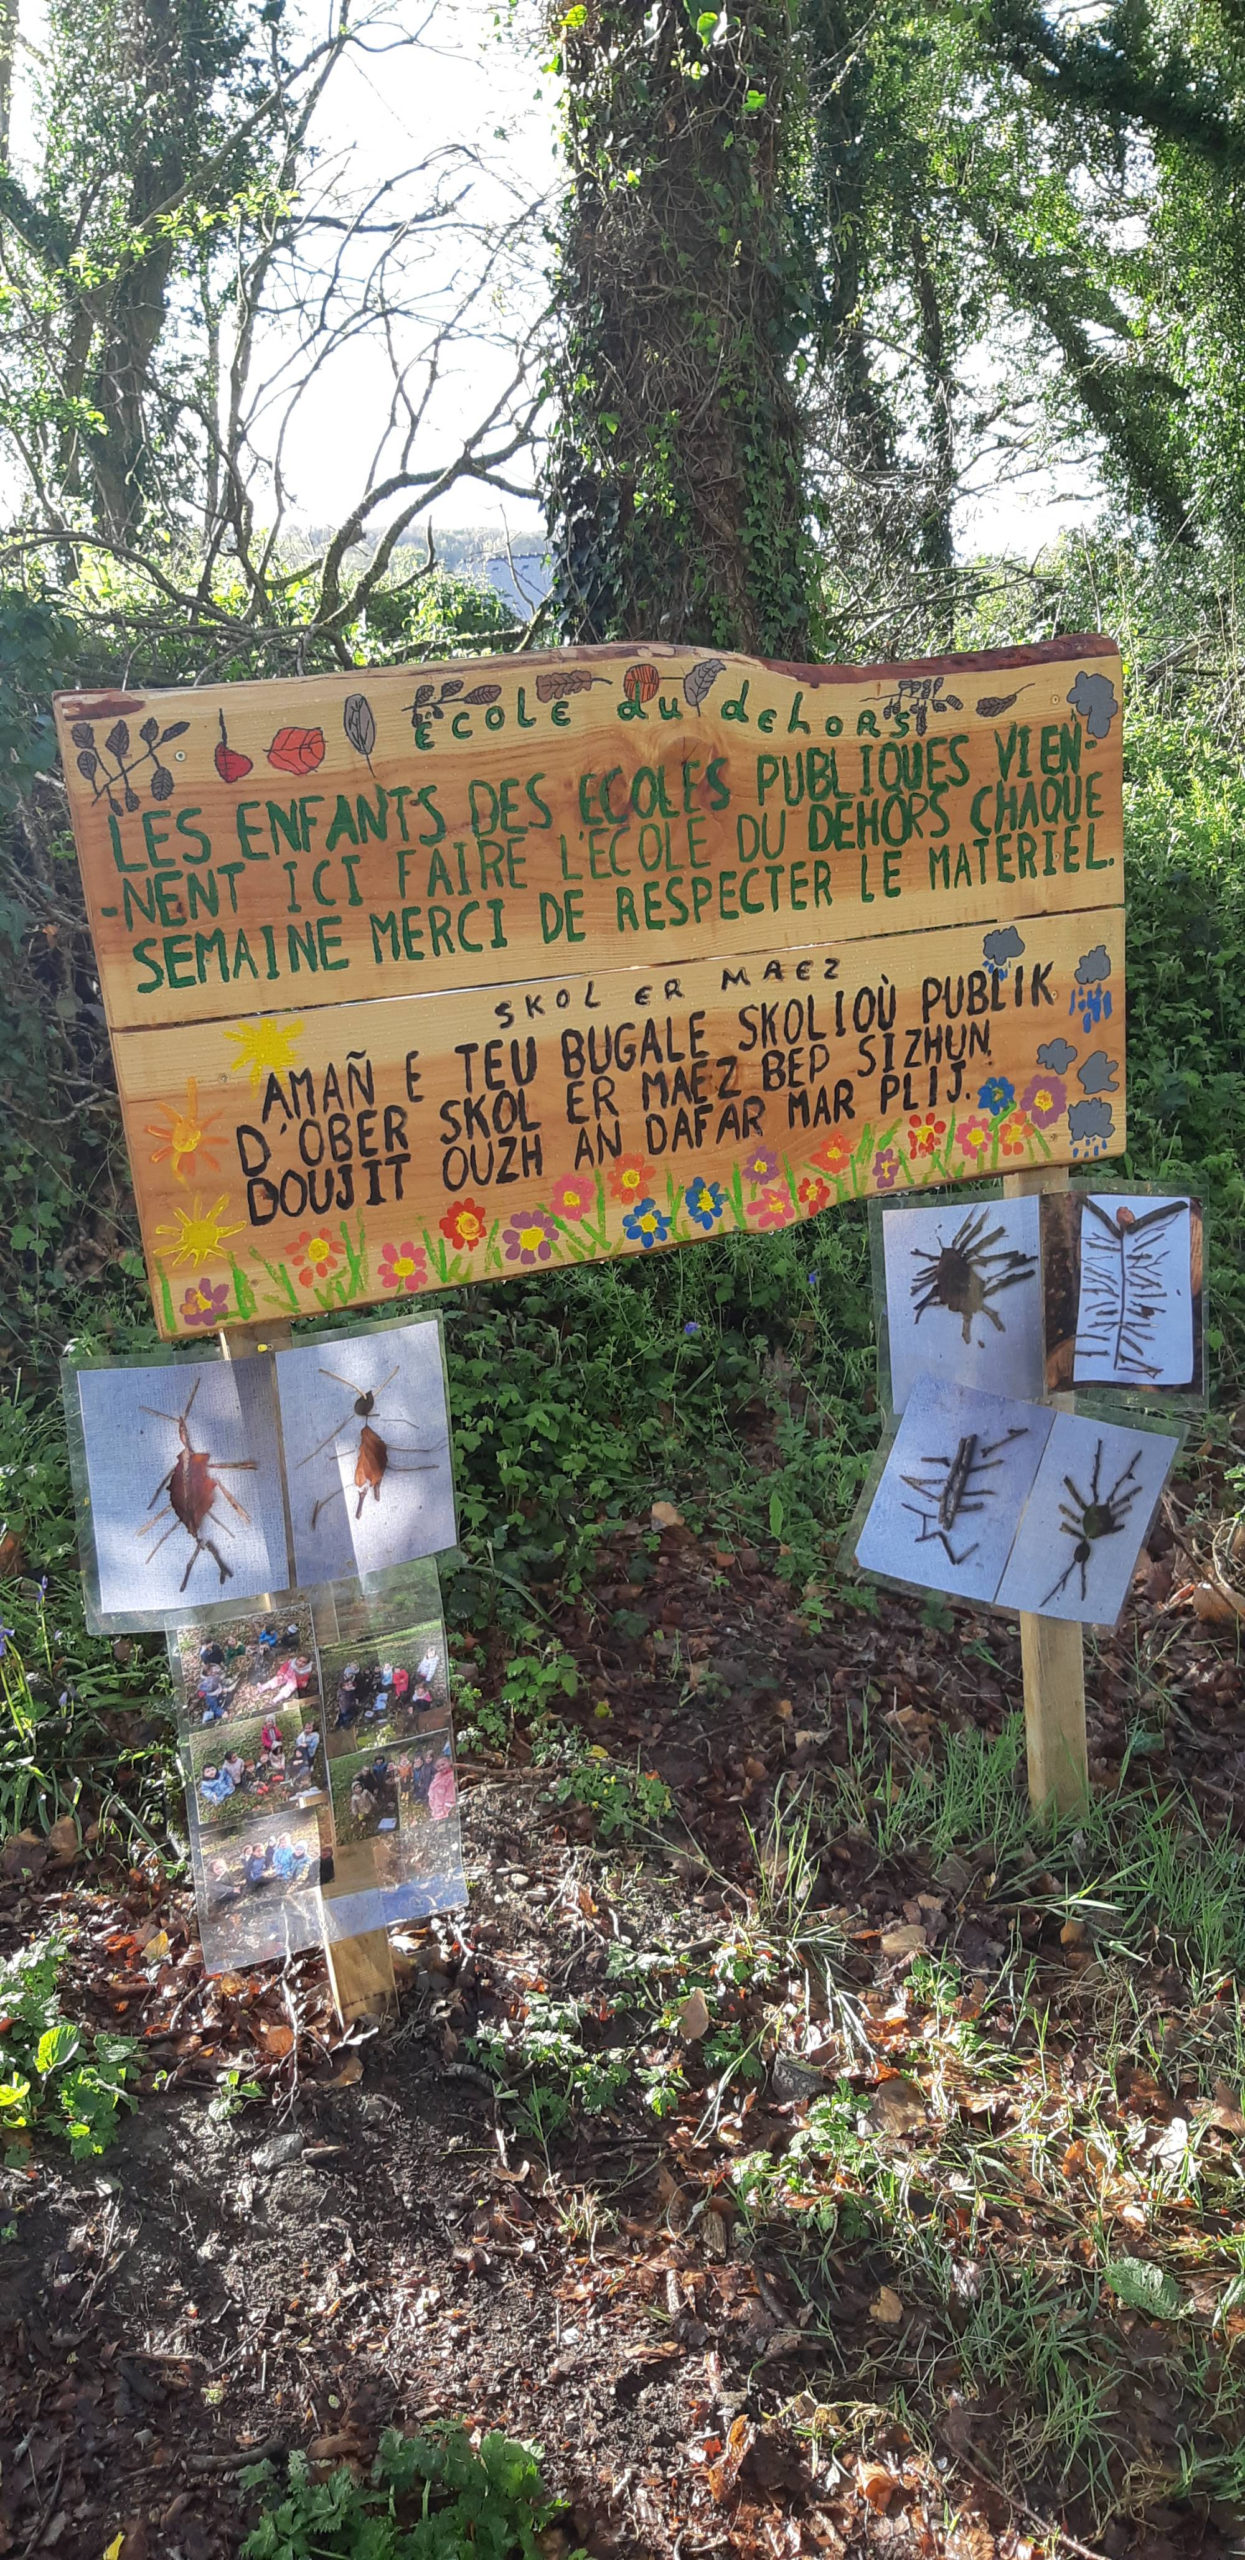 école du dehors
LES ENFANTS DES ECOLES PUBLIQUES VIEN-
-NENT ICI FAIRE L'ECOLE DU DEHORS CHAQUE
SEMAINE MERCI DE RESPECTER LE MATERIEL.
SKOL ER MAEZ
AMAÑ E TEU BUGALE SKOLIOÙ PUBLIK
D'OBER SKOL ER MAEZ BEP SIZHUN.
DOUJIT OUZH AN DAFAR MAR PLIJ.